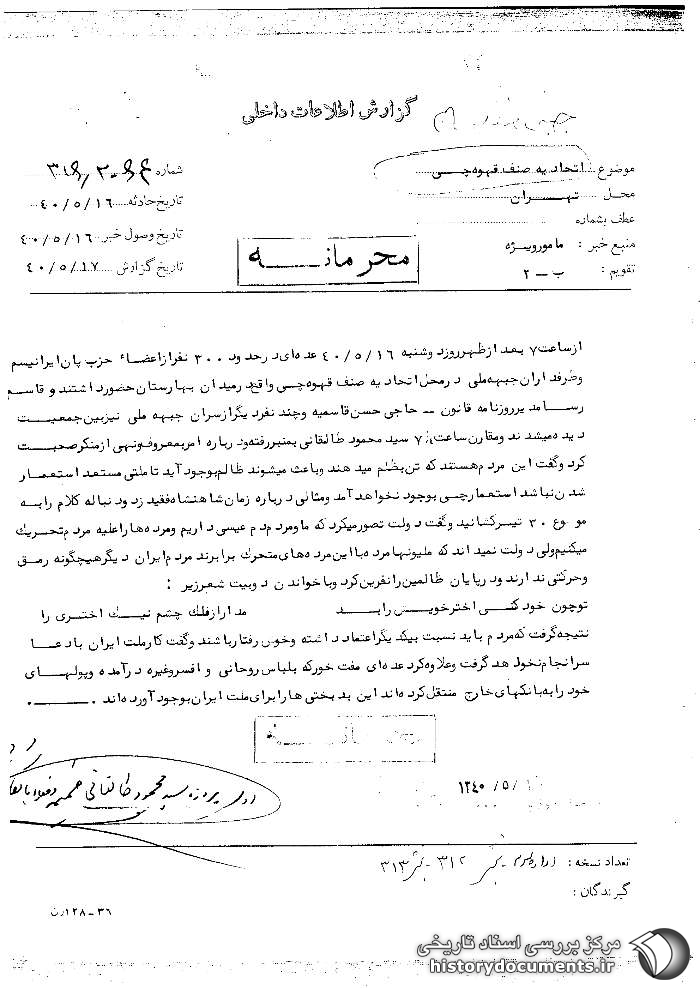 گزارش اطلاعات داخلی
موضوع اتحادیه صنف قهوه‌چی
شماره
محل تهران
تاریخ حادثه ۴۰/۵/۱۶
عطف بشماره
تاریخ وصول خبر ۴۰/۵/۱۶
منبع خبر : مامور ویژه
تاریخ گزارش ۴۰/۵/۱۷
تقویم : ب - ۲
محرمانه
از ساعت ۷ بعد از ظهر روز دوشنبه ۴۰/۵/۱۶ عده‌ای در حدود ۳۰۰ نفر از اعضاء حزب پان ایرانیسم
و طرفداران جبهه ملی در محل اتحادیه صنف قهوه‌چی واقع در میدان بهارستان حضور داشتند و قاسم
رسا مدیر روزنامه قانون - حاجی حسن قاسمیه و چند نفر دیگر از سران جبهه ملی نیز بین جمعیت
دیده میشدند و مقارن ساعت ۷ سید محمود طالقانی بمنبر رفته و درباره امر بمعروف و نهی از منکر صحبت
کرد و گفت این مردم هستند که تن بظلم میدهند و باعث میشوند ظالم بوجود آید تا ملتی مستعد استعمار
شدن نباشد استعمارچی بوجود نخواهد آمد و مثالی درباره زمان شاهنشاه فقید زد و دنباله کلام را به
موضوع ۳۰ تیر کشانید و گفت دولت تصور میکرد که ما و مردم دم عیسی داریم و مرده‌ها را علیه مردم تحریک
میکنیم ولی دولت نمیداند که ملیونها مرده با این مرده‌های متحرک برابرند مردم ایران دیگر هیچگونه رمق
و حرکتی ندارند و در پایان ظالمین را نفرین کرد و با خواندن دو بیت شعر زیر :
تو چون خود کنی اختر خویش را بد مدار از فلک چشم نیک اختری را
نتیجه گرفت که مردم باید نسبت بیکدیگر اعتماد داشته و خوش رفتار باشند و گفت کار ملت ایران با دعا
سرانجام نخواهد گرفت و علاوه کرد عده‌ای مفت خور که بلباس روحانی و افسر و غیره درآمده و پولهای
خود را به بانکهای خارج منتقل کرده‌اند این بدبختی‌ها را برای ملت ایران بوجود آورده‌اند .
۱۳۴۰/۵/
تعداد نسخه : ۳۱۲ - ۳۱۳
گیرندگان :
۳۶-۱۲۸
مرکز بررسی اسناد تاریخی
historydocuments.ir